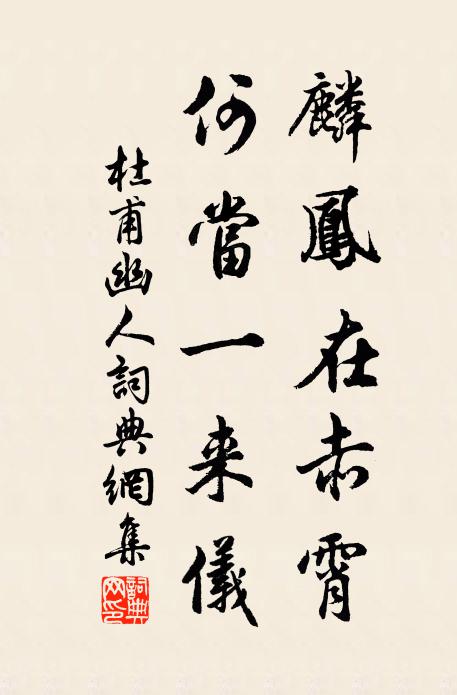 麟鳳在赤霄
何當一来儀
杜甫幽人詞典網集
詞典网印